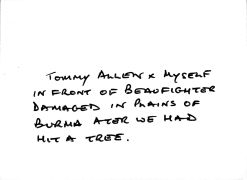 TOMMY ALLEN & MYSELF
IN FRONT OF BEAUFIGHTER
DAMAGED IN PLAINS OF
BURMA ATER WE HAD
HIT A TREE.